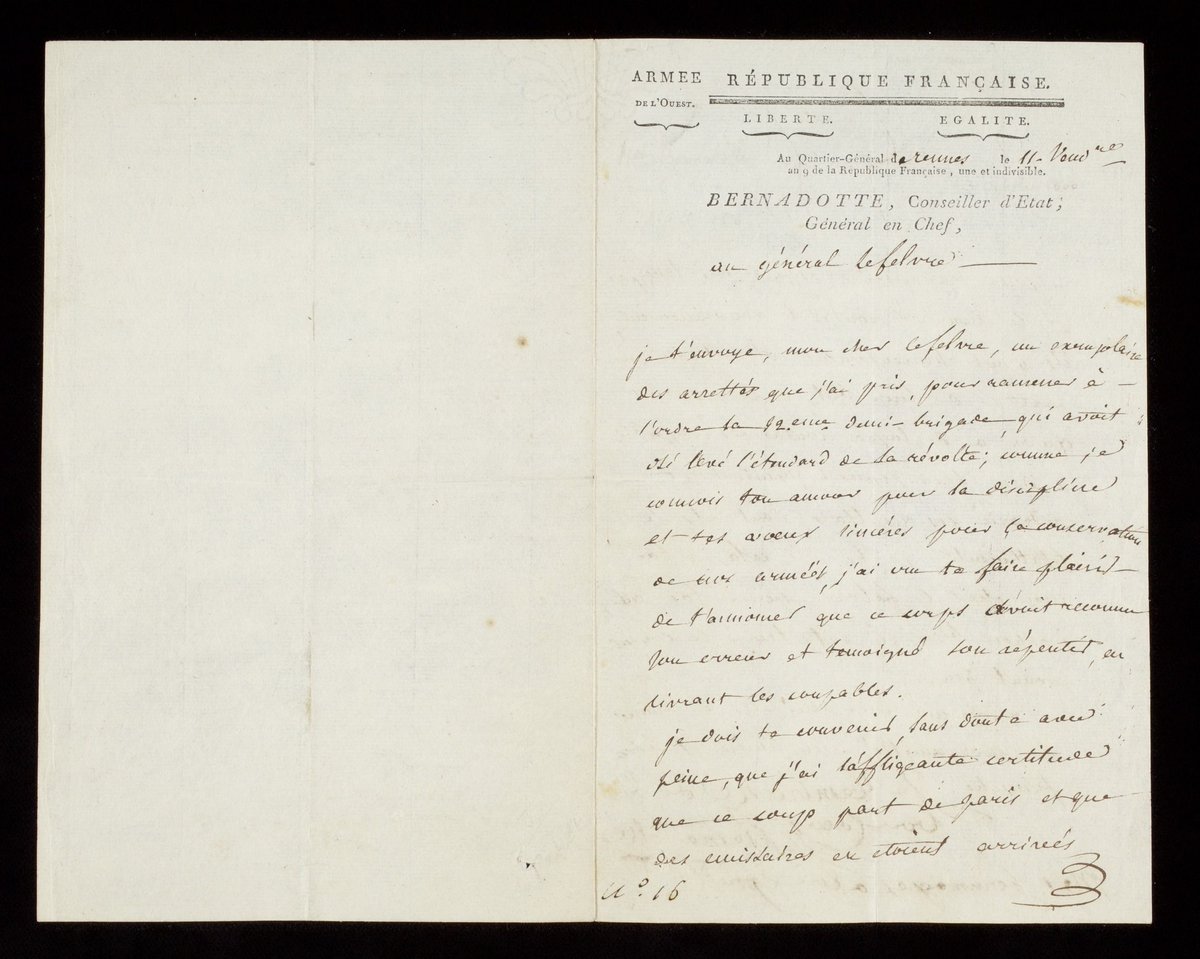 ARMEE RÉPUBLIQUE FRANÇAISE.
DE L'OUEST.
LIBERTE. EGALITE.
Au Quartier-Général de rennes le 11 - Vend re
an 9 de la République Française, une et indivisible.
BERNADOTTE, Conseiller d'Etat;
Général en Chef,
au général Lefebvre
je t'envoye, mon cher Lefebvre, un exemplaire
des arrettés que j'ai pris, pour ramener à
l'ordre la 52.eme demi-brigade, qui avoit
osé levé l'étendard de la révolte; comme je
connois ton amour pour la discipline
et tes voeux sincéres pour la conservation
de nos armées, j'ai cru te faire plaisir
de t'annoncer que ce corps avoit reconnu
son erreur et temoigné son répentir, en
livrant les coupables.
je dois te convenir, sans doute avec
peine, que j'ai l'affligeante certitude
que ce coup part de paris et que
des emissaires en etoient arrivés
N.o 16